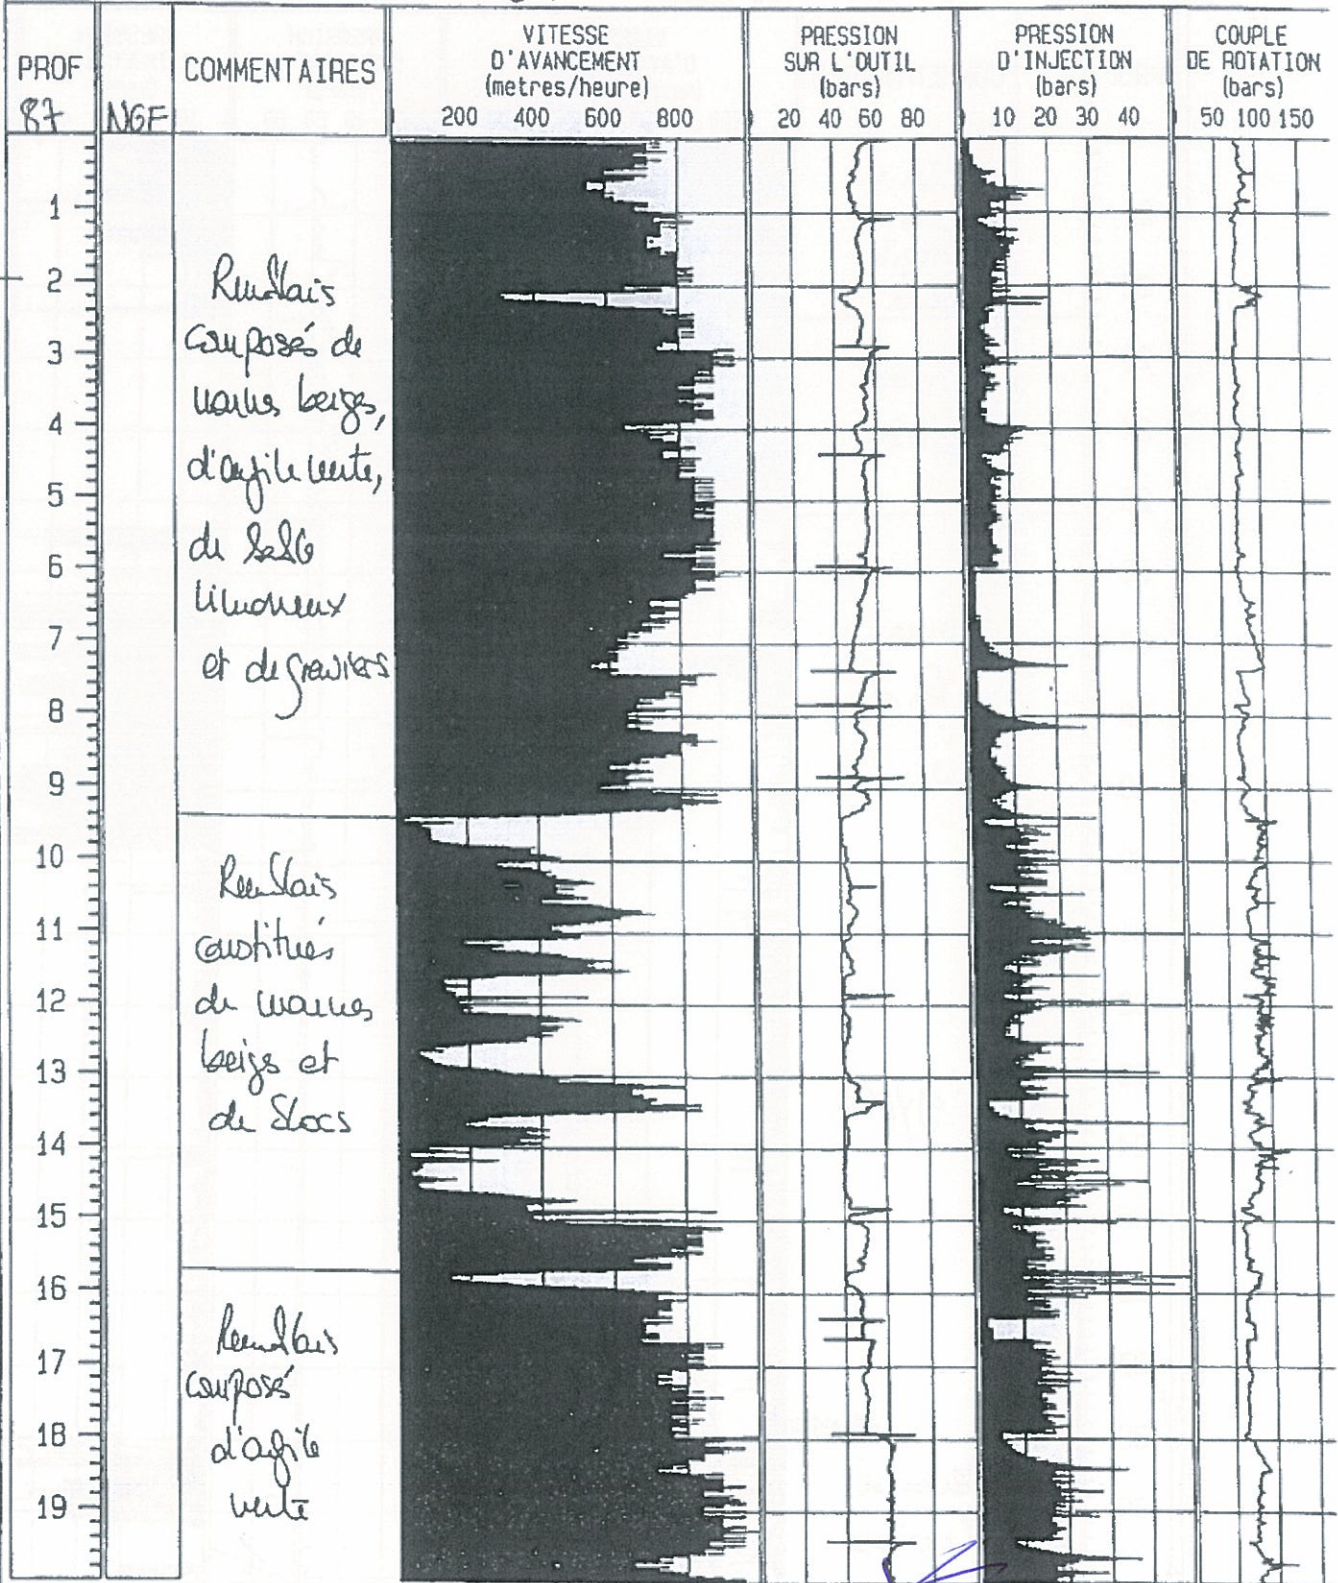 PROF
87
NGF
COMMENTAIRES
VITESSE
D'AVANCEMENT
(metres/heure)
200 400 600 800
PRESSION
SUR L'OUTIL
(bars)
20 40 60 80
PRESSION
D'INJECTION
(bars)
10 20 30 40
COUPLE
DE ROTATION
(bars)
50 100 150
1
2
3
4
5
6
7
8
9
10
11
12
13
14
15
16
17
18
19
Remblais
composés de
marnes beiges,
d'argile verte,
de sable
limoneux
et de graviers
Remblais
constitués
de marnes
beiges et
de blocs
Remblais
composé
d'argile
verte